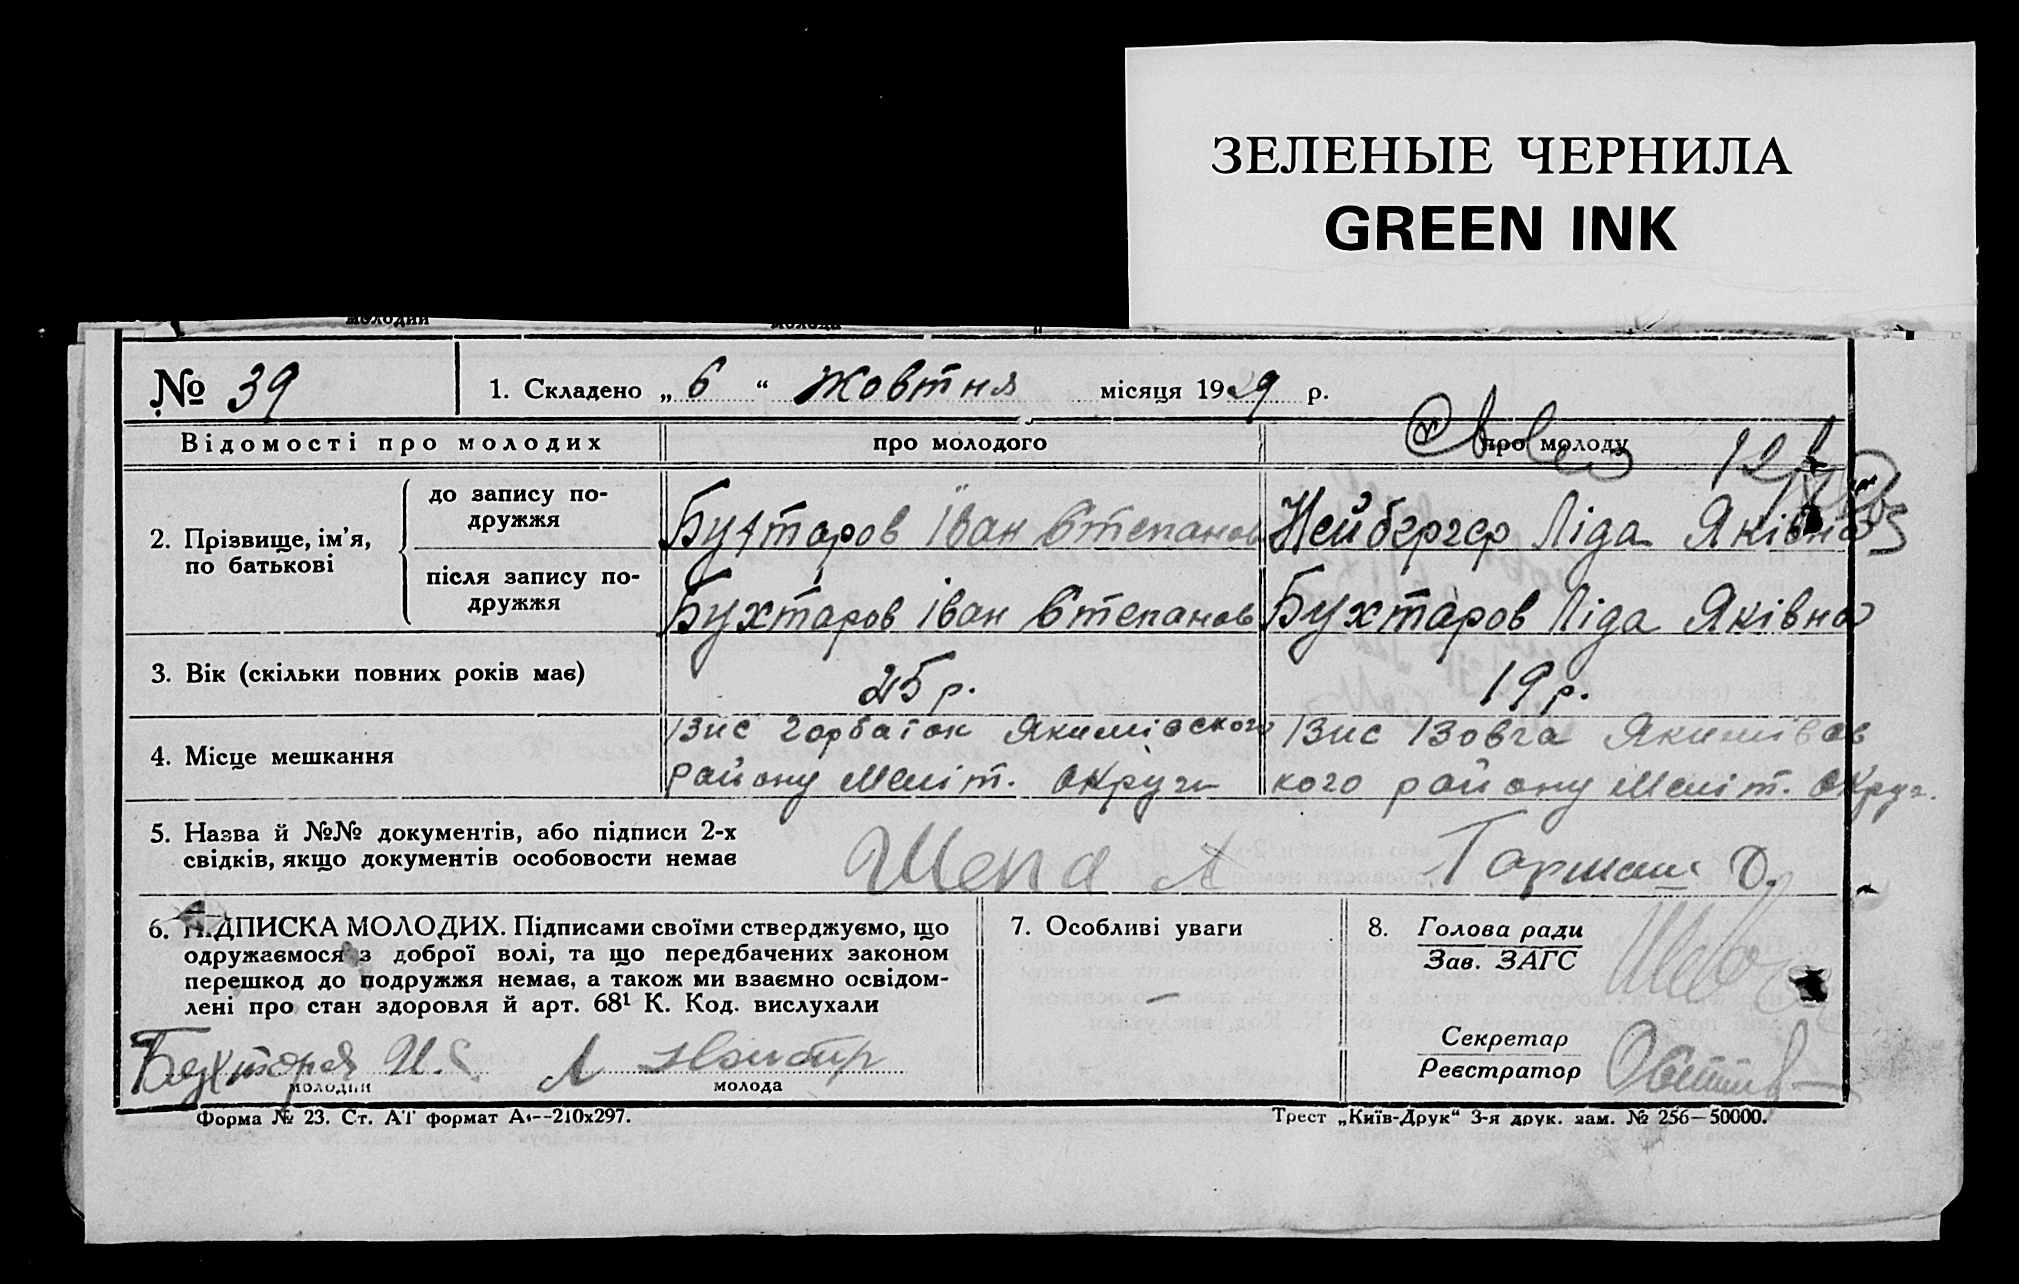 ЗЕЛЕНЫЕ ЧЕРНИЛА
GREEN INK
молодий
молода
№ 39
1. Складено „ 6 “ жовтня місяця 1929 р.
Відомості про молодих
про молодого
про молоду
2. Прізвище, ім'я,
по батькові
до запису по-
дружжя
Бухтаров Іван Степанов
Нейбергер Ліда Яківна
після запису по-
дружжя
Бухтаров Іван Степанов
Бухтаров Ліда Яківна
3. Вік (скільки повних років має)
25 р.
19 р.
4. Місце мешкання
району Меліт. Округи
кого району Меліт. Округ.
5. Назва й №№ документів, або підписи 2-х
свідків, якщо документів особовости немає
6. ПІДПИСКА МОЛОДИХ. Підписами своїми стверджуємо, що
одружаємося з доброї волі, та що передбачених законом
перешкод до подружжя немає, а також ми взаємно освідом-
лені про стан здоровля й арт. 68¹ К. Код. вислухали
молодий
молода
7. Особливі уваги
—
8. Голова ради
Зав. ЗАГС
Секретар
Реєстратор
Форма № 23. Ст. АТ формат А₄--210х297.
Трест „Київ-Друк“ 3-я друк. зам. № 256—50000.